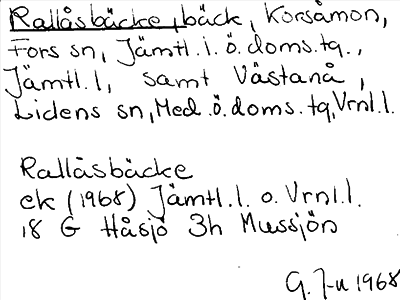 Rallåsbäcke, bäck, Korsåmon,
Fors sn, Jämtl. i. ö. doms. tg.,
Jämtl. l, samt Västanå,
Lidens sn, Med. ö. doms. tg, Vrnl. l.
Rallåsbäcke
ek (1968) Jämtl. l. o. Vrnl. l.
18 G Håsjö 3h Mussjön
1968